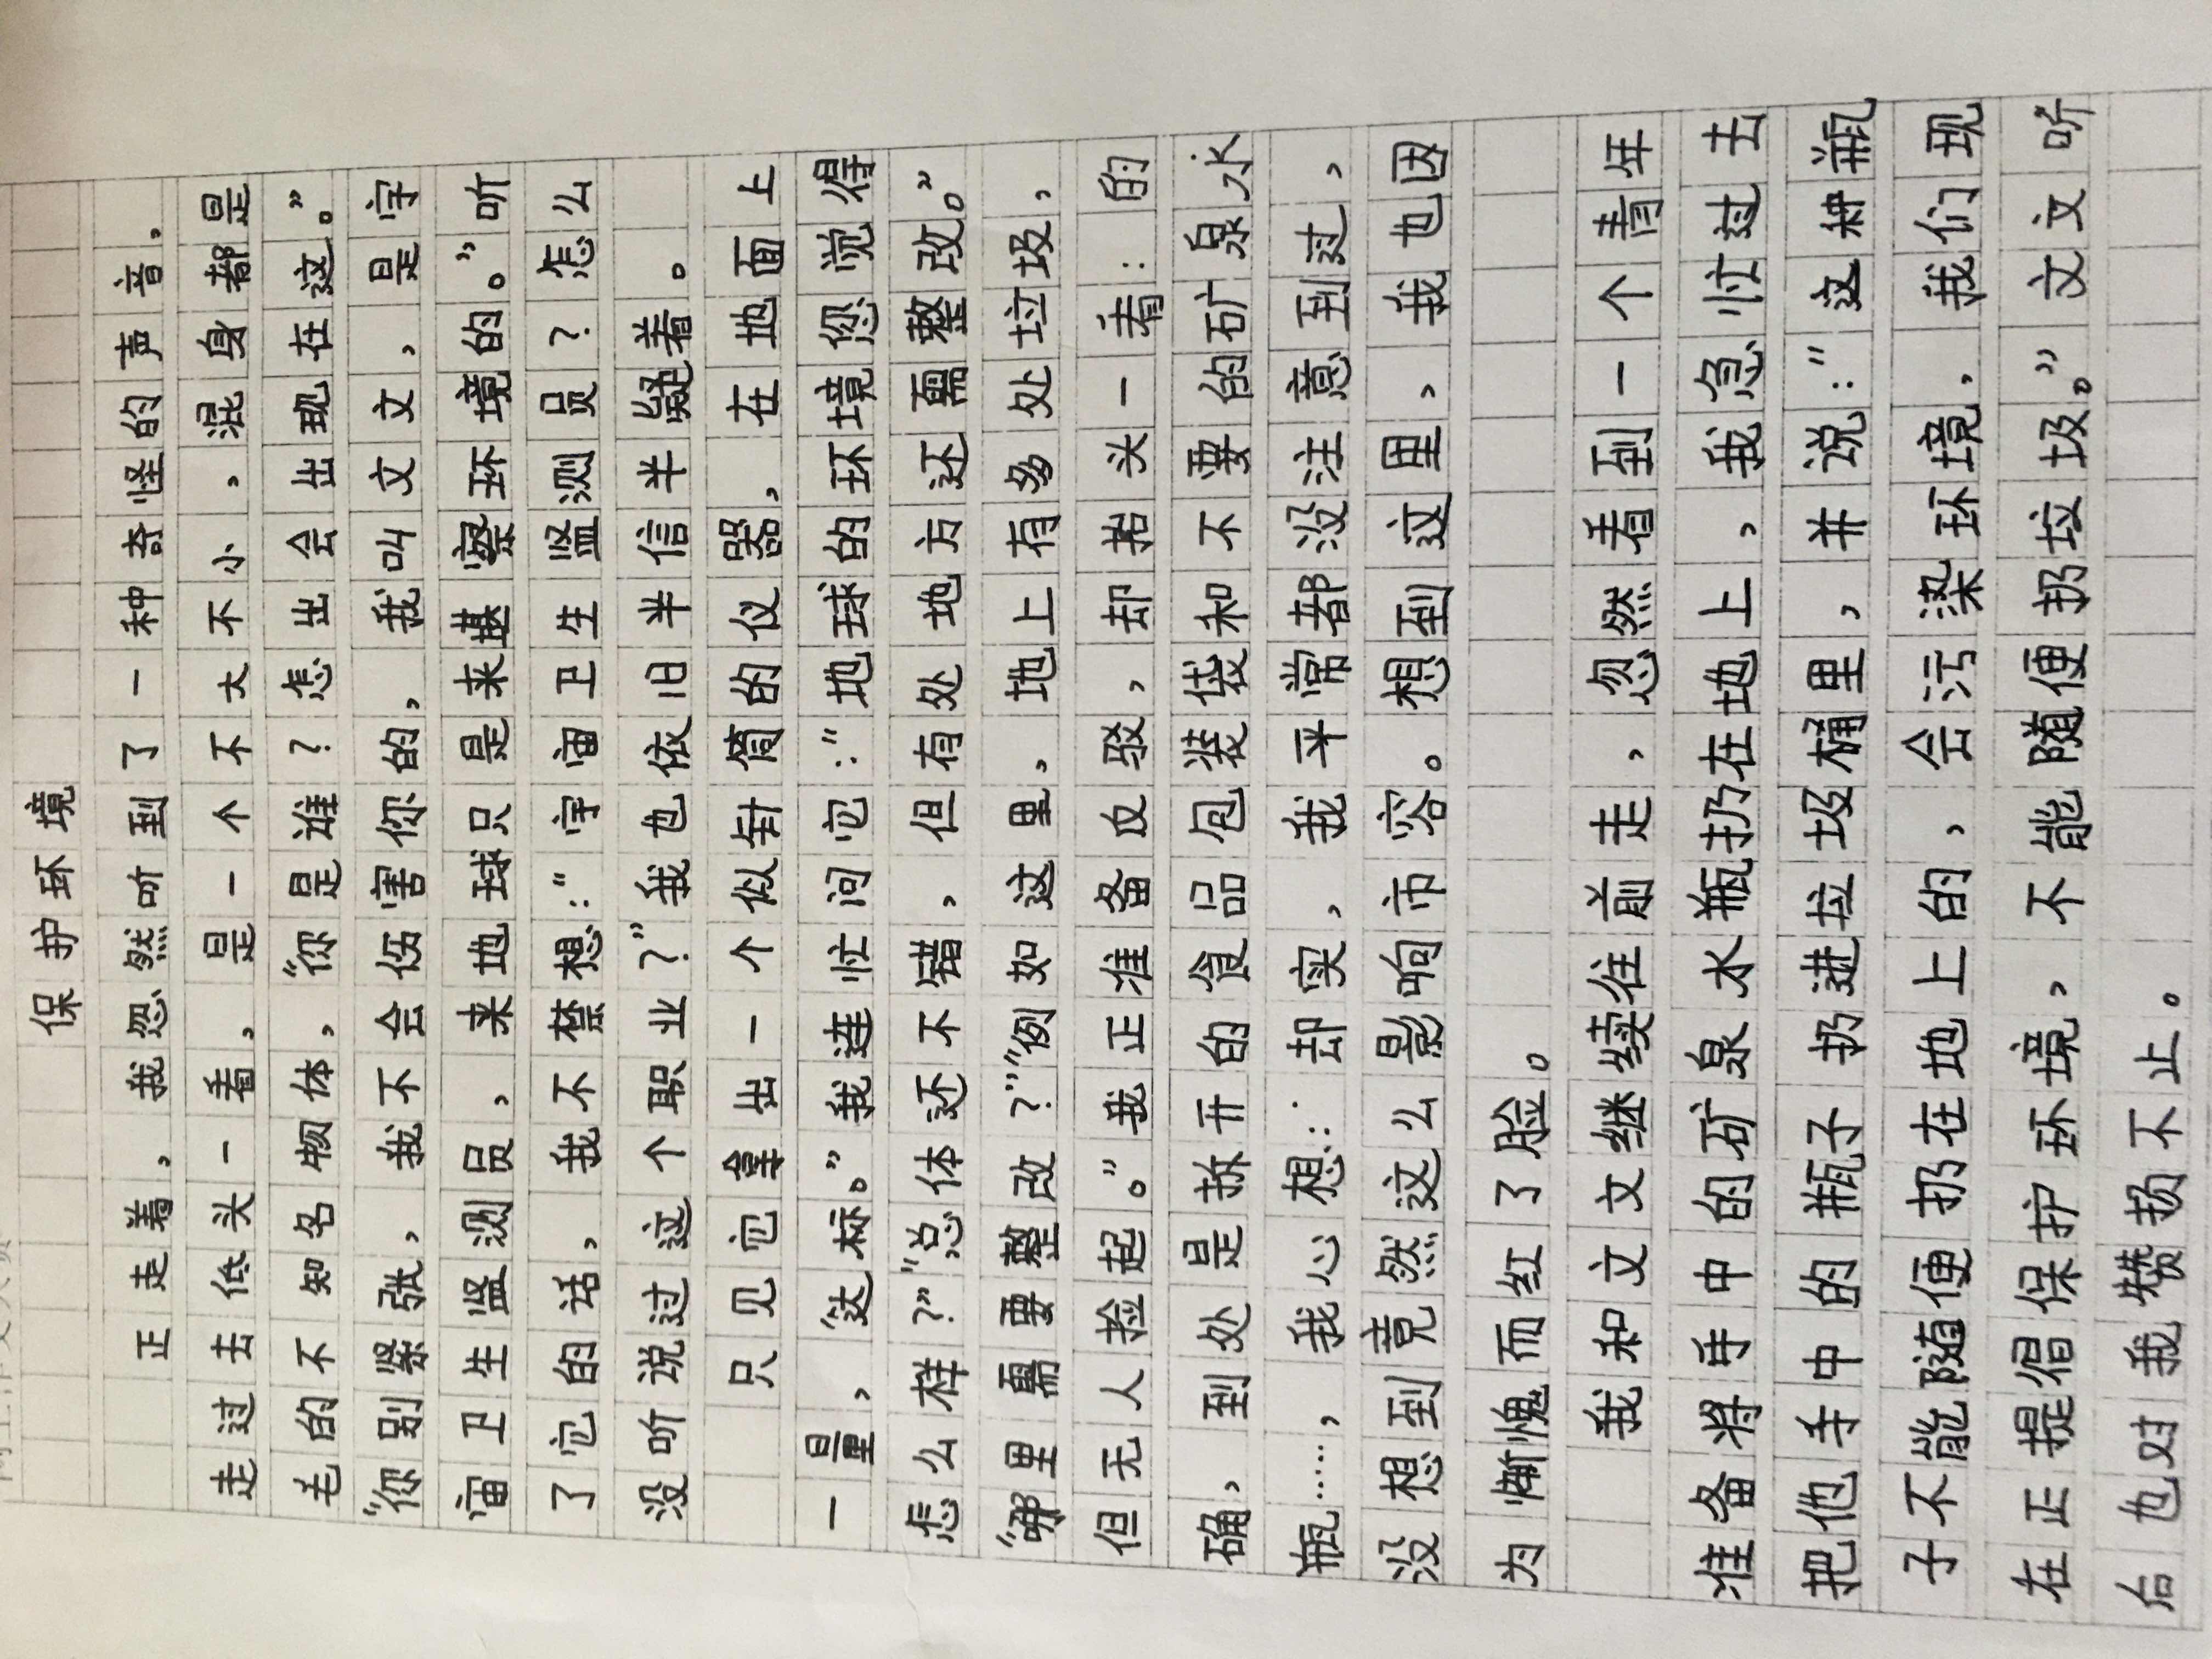 保护环境
正走着，我忽然听到了一种奇怪的声音，
走过去低头一看，是一个不大不小，混身都是
毛的不知名物体，“你是谁？怎出会出现在这。”
“你别紧张，我不会伤害你的，我叫文文，是宇
宙卫生监测员，来地球只是来堪察环境的。”听
了它的话，我不禁想：“宇宙卫生监测员？怎么
没听说过这个职业？”我也依旧半信半疑着。
只见它拿出一个似针筒的仪器，在地面上
一量，“达标。”我连忙问它：“地球的环境您觉得
怎么样？”“总体还不错，但有处地方还需整改。”
“哪里需要整改？”“例如这里，地上有多处垃圾，
但无人捡起。”我正准备反驳，却抬头一看：的
确，到处是拆开的食品包装袋和不要的矿泉水
瓶……，我心想：却实，我平常都没注意到过，
没想到竟然这么影响市容。想到这里，我也因
为惭愧而红了脸。
我和文文继续往前走，忽然看到一个青年
准备将手中的矿泉水瓶扔在地上，我急忙过去
把他手中的瓶子扔进垃圾桶里，并说：“这种瓶
子不能随便扔在地上的，会污染环境，我们现
在正提倡保护环境，不能随便扔垃圾。”文文听
后也对我赞扬不止。